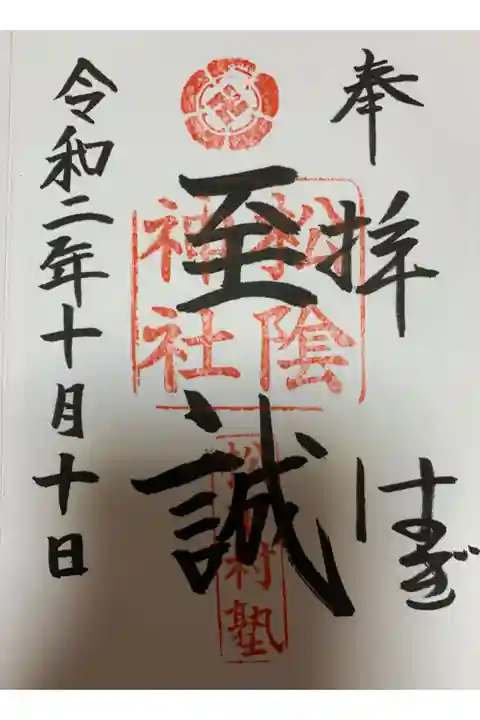 奉拝
至誠
松陰
神社
松下村塾
令和二年十月十日